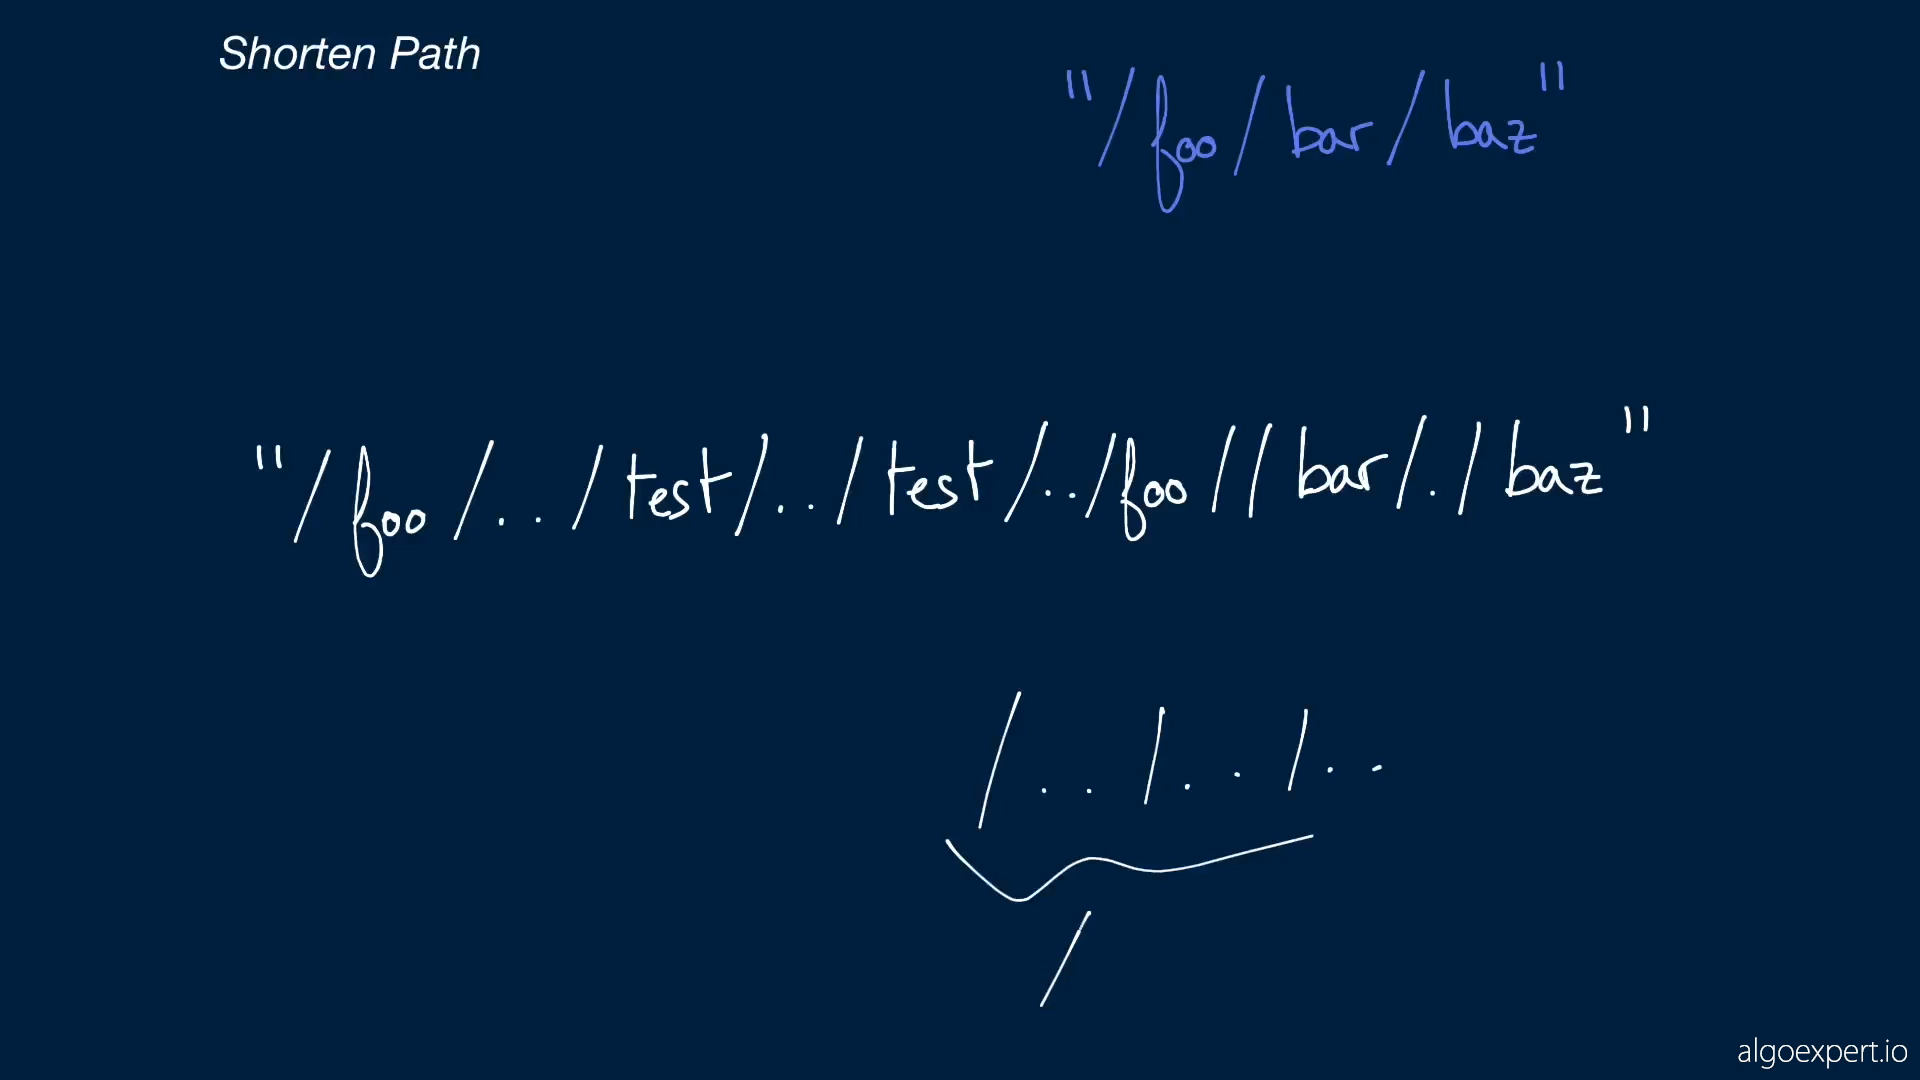 Shorten Path
"/foo/bar/baz"
"/foo/../test/../test/../foo//bar/./baz"
/../../..
/
algoexpert.io